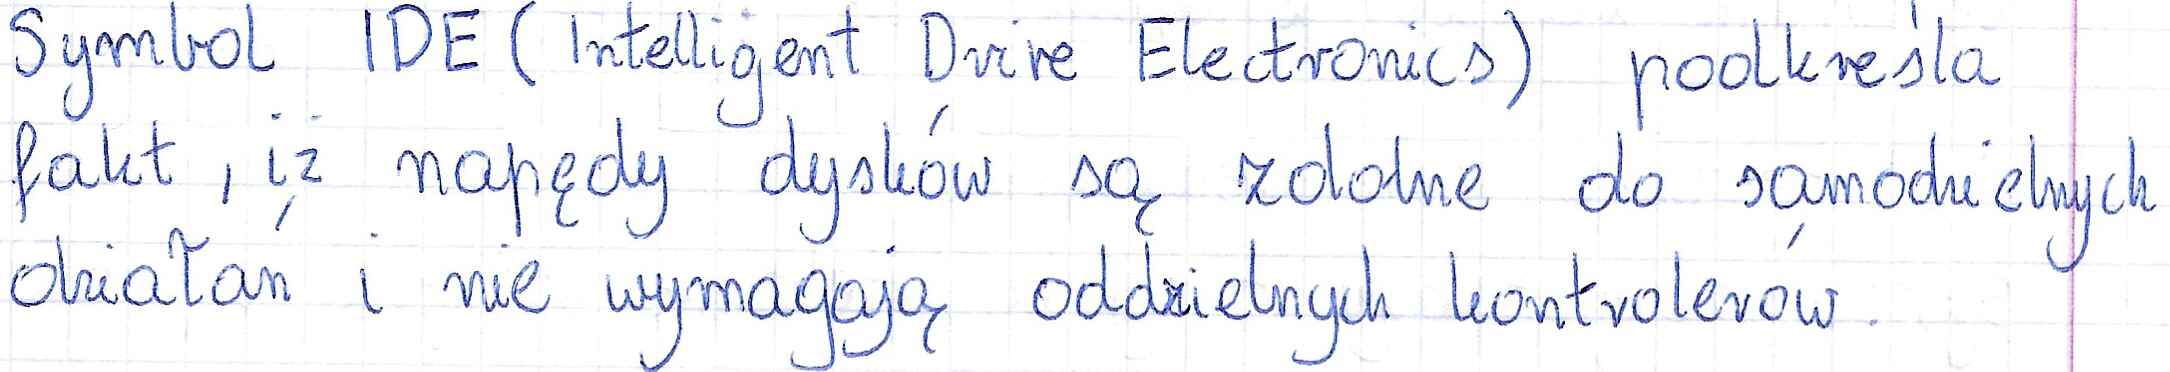 Symbol IDE (Intelligent Drive Electronics) podkreśla
fakt, iż napędy dysków są zdolne do samodzielnych
działań i nie wymagają oddzielnych kontrolerów.